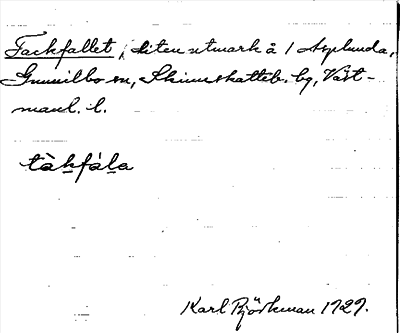 Tackfallet, liten utmark å 1 Asplunda,
Gunnilbo sn, Skinnskatteb. bg, Väst-
manl. l.
tàkfál̠a
Karl Björkman 1929.